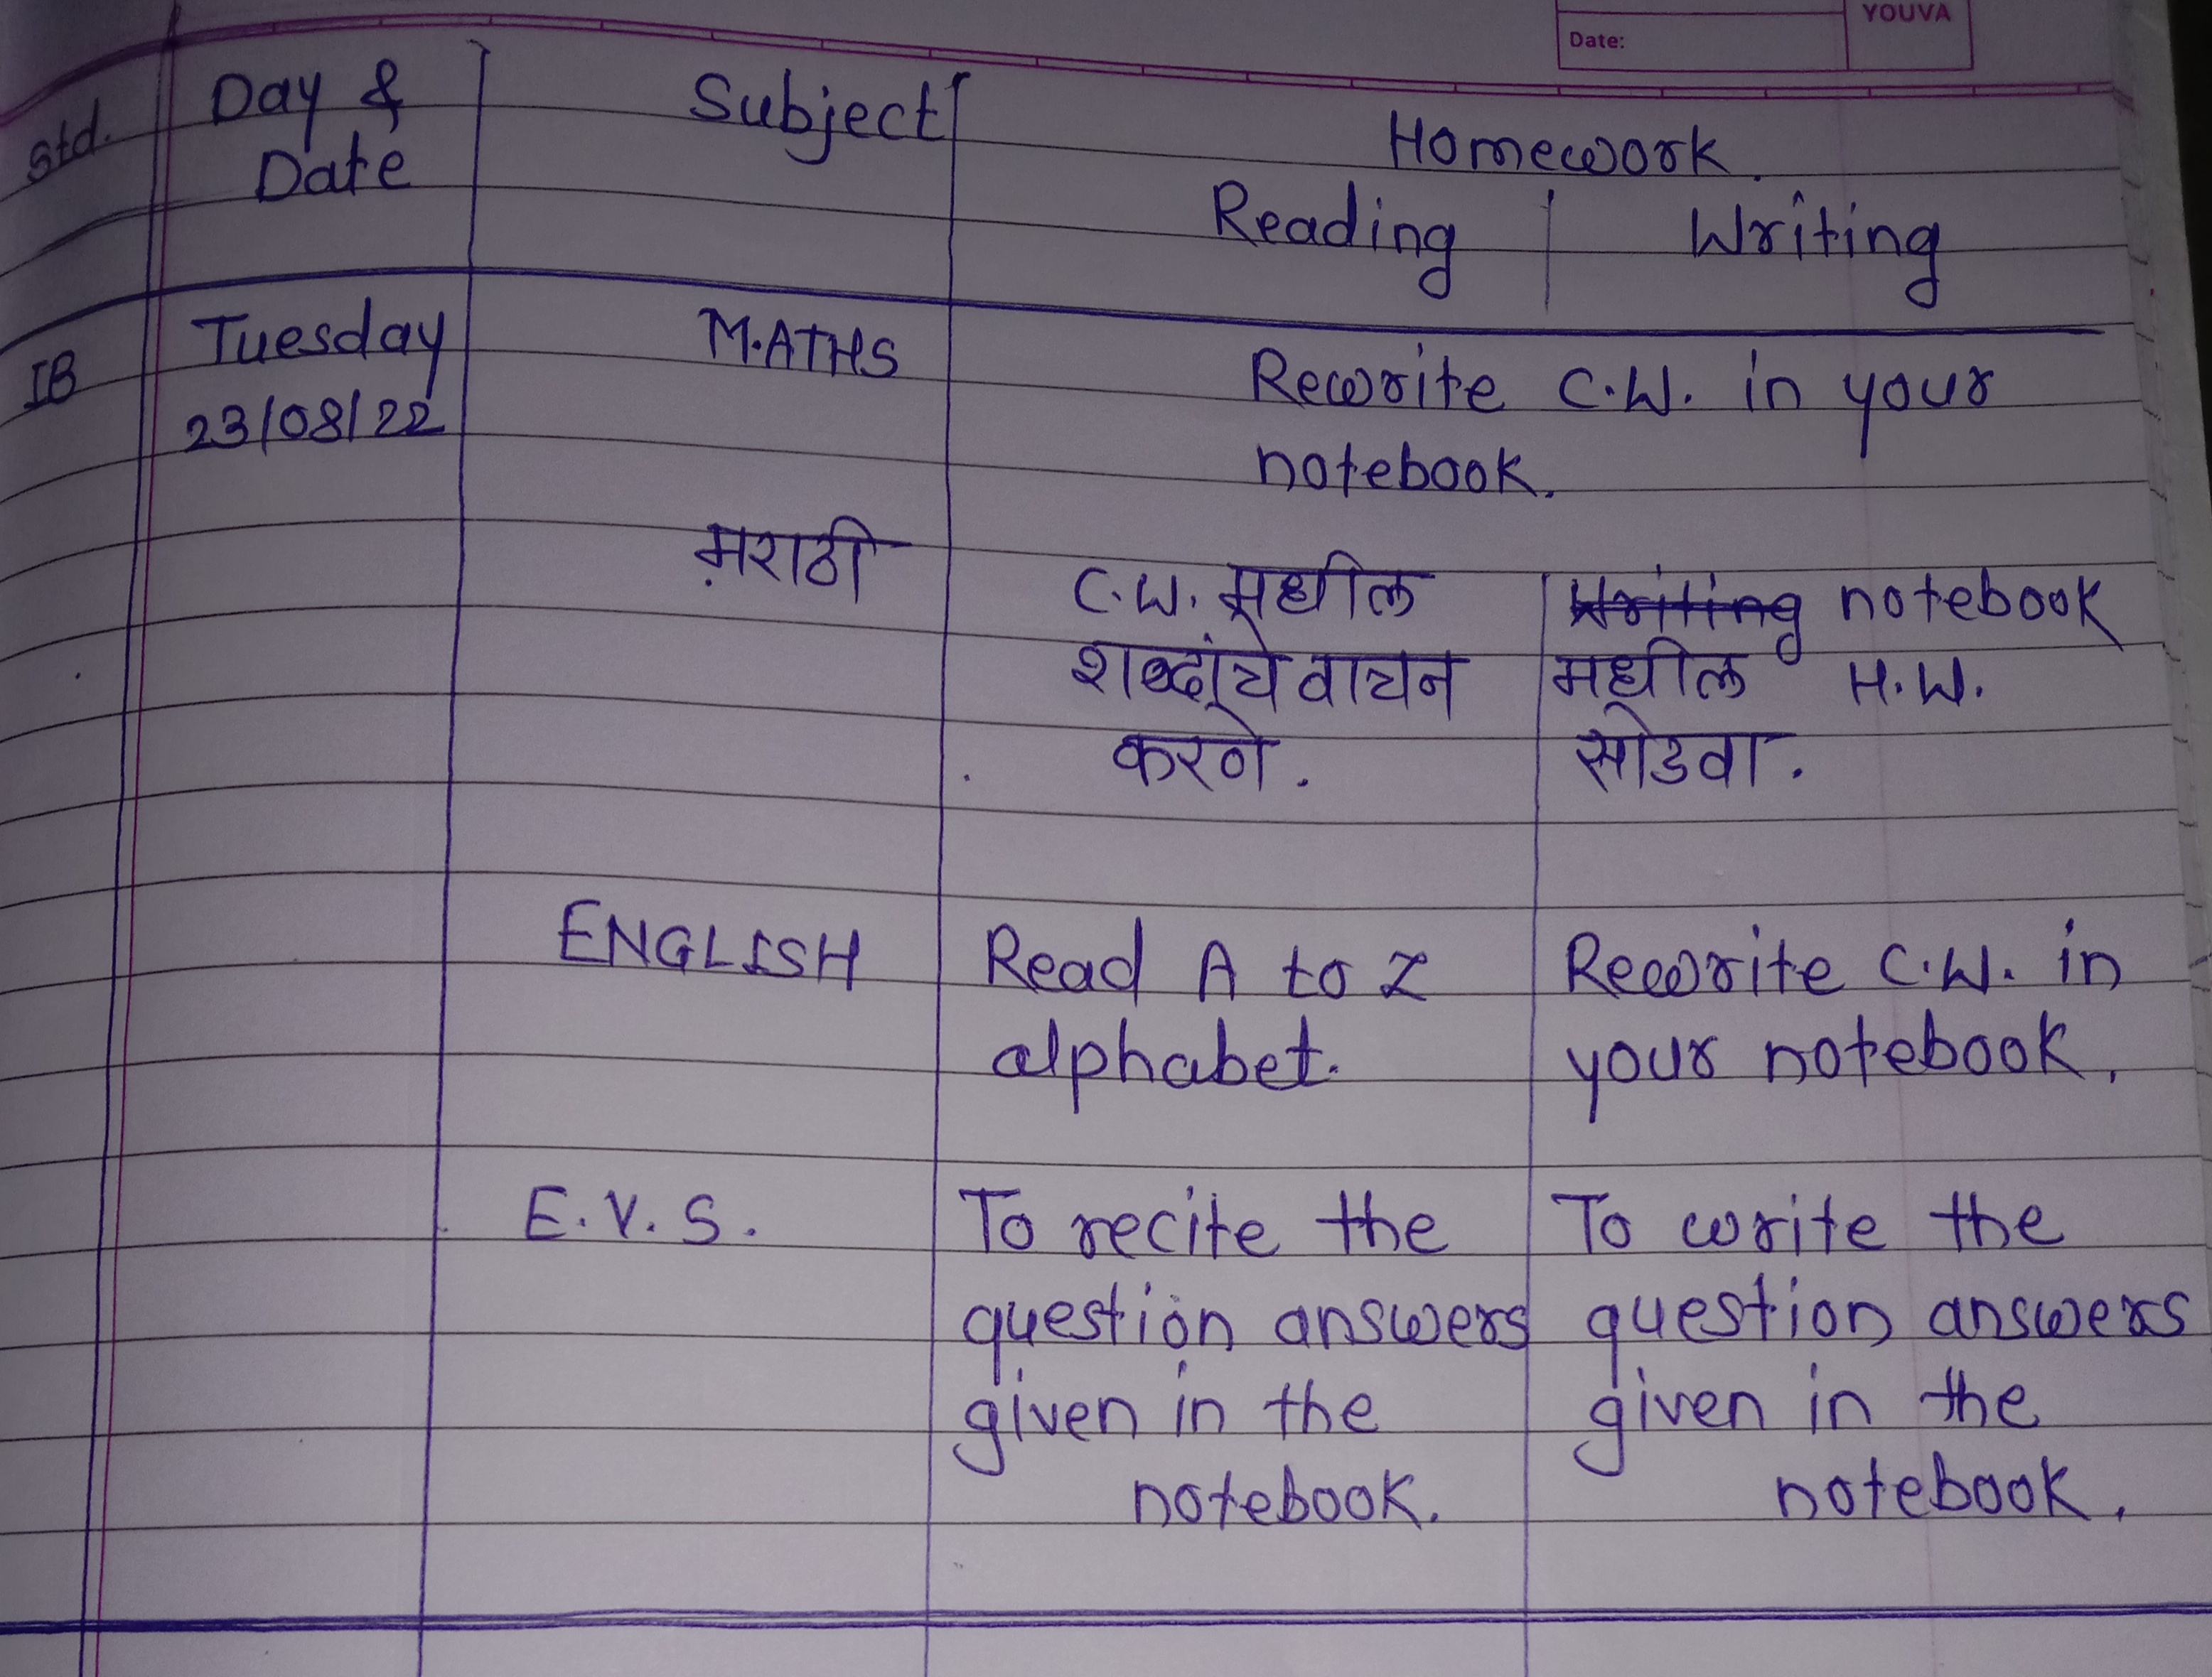 YOUVA
Date:
Std. Day & Subject Homework.
Date Reading Writing
IB Tuesday MATHS Rewrite C.W. in your
23/08/22 notebook.
मराठी C.W. मधील notebook
शब्दांचे वाचन मधील H.W.
करणे. सोडवा.
ENGLISH Read A to Z Rewrite C.W. in
alphabet. your notebook.
E.V.S. To recite the To write the
question answers question answers
given in the given in the
notebook. notebook.